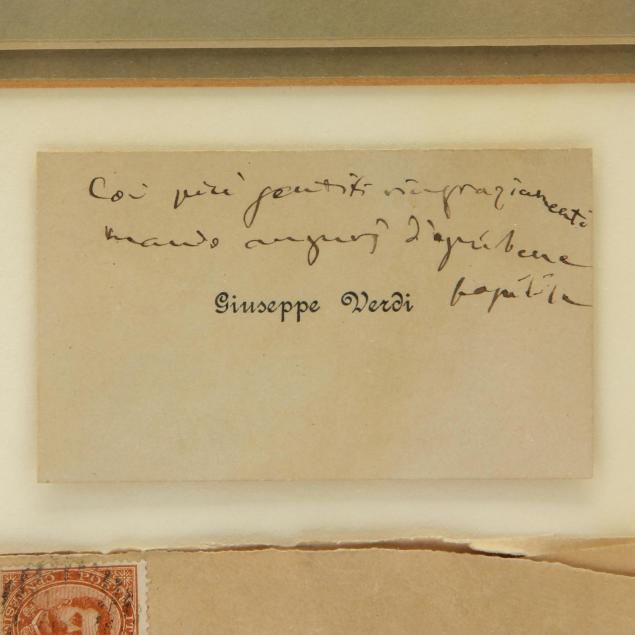 Coi più gentili ringraziamenti
mando augurj d'ogni bene
Giuseppe Verdi